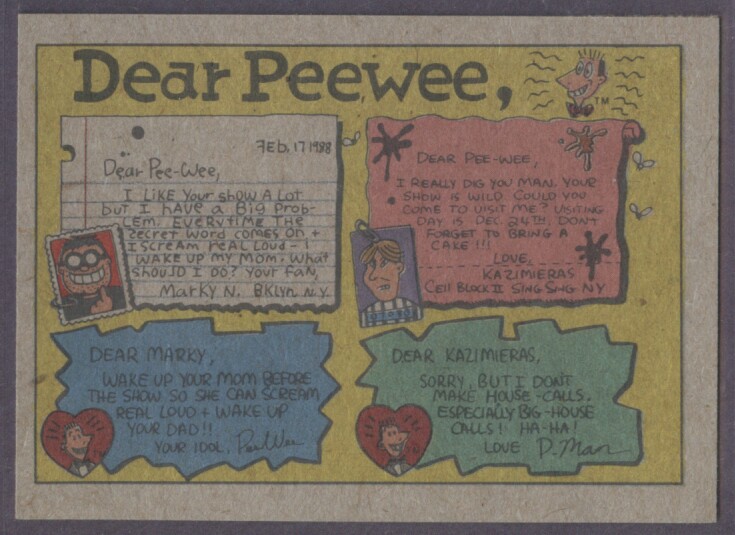 Dear Peewee,
TM
FEb. 17 1988
Dear Pee-Wee,
I LIKE Your show A Lot
but I HAVE a BIG Prob-
LEM. EVERYTIME THE
secret WORD comes ON +
I scream REAL LOUD - I
WAKE UP MY MOM. What
shouJD I DO? Your FAN,
MarKy N. BKlyn. N.Y.
DEAR PEE-WEE,
I REALLY DIG YOU MAN. YOUR
SHOW IS WILD COULD YOU
COME TO VISIT ME? VISITING
DAY IS DEC. 24TH. DON'T
FORGET TO BRING A
CAKE!!!
LOVE,
KAZIMIERAS
CELL BLOCK II SING SING NY
DEAR MARKY,
WAKE UP YOUR MOM BEFORE
THE SHOW SO SHE CAN SCREAM
REAL LOUD + WAKE UP
YOUR DAD!!
YOUR IDOL, PeeWee
DEAR KAZIMIERAS,
SORRY, BUT I DON'T
MAKE HOUSE-CALLS.
ESPECIALLY BIG-HOUSE
CALLS! HA-HA!
LOVE P. Man